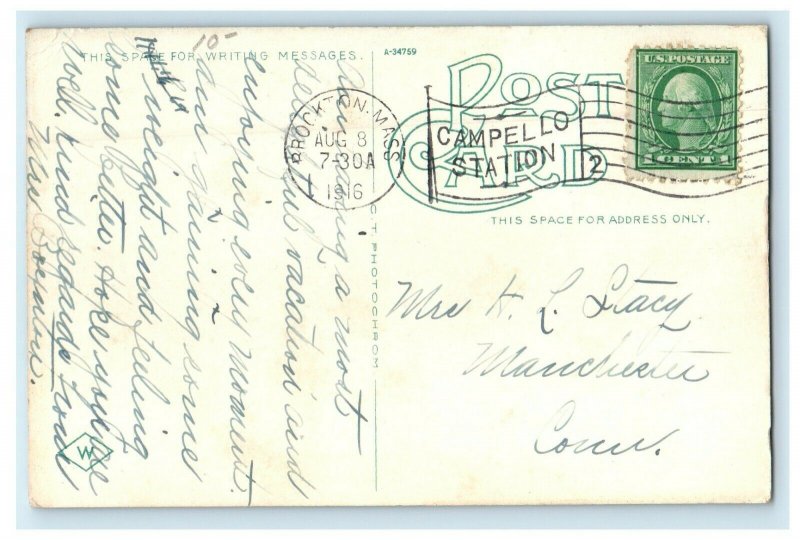 THIS SPACE FOR WRITING MESSAGES.
A-34759
POST
CARD
BROCKTON, MASS
AUG 8
7-30A
1916
CAMPELLO
STATION
2
U.S. POSTAGE
1 CENT 1
THIS SPACE FOR ADDRESS ONLY.
C T PHOTOCHROM
Mrs H. L. Stacy
Manchester
Conn.
10-
Am having a most
delightful vacation and
enjoying every moment.
am gaining some
in weight and feeling
some better. Hope you are
well. Kind regards from
Mrs
W